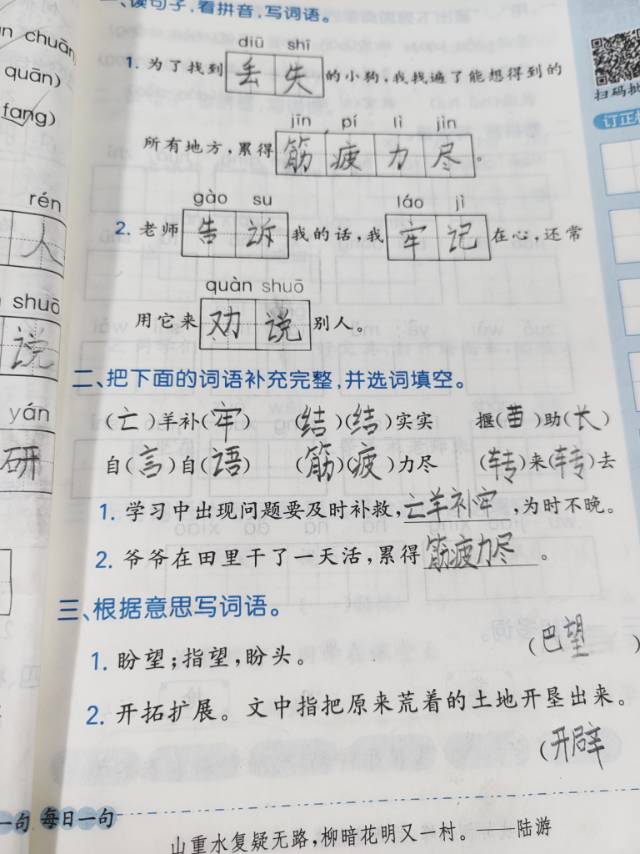 n chuān
quān)
fang)
rén
人
shuō
说
yán
研
一、读句子，看拼音，写词语。
diū shī
1. 为了找到丢失的小狗，我找遍了能想得到的
jīn pí lì jìn
所有地方，累得筋疲力尽。
gào su láo jì
2. 老师告诉我的话，我牢记在心，还常
quàn shuō
用它来劝说别人。
二、把下面的词语补充完整，并选词填空。
(亡)羊补(牢) (结)(结)实实 揠(苗)助(长)
自(言)自(语) (筋)(疲)力尽 (转)来(转)去
1. 学习中出现问题要及时补救，亡羊补牢，为时不晚。
2. 爷爷在田里干了一天活，累得筋疲力尽。
三、根据意思写词语。
1. 盼望；指望，盼头。 (巴望)
2. 开拓扩展。文中指把原来荒着的土地开垦出来。
(开辟
一句 每日一句
山重水复疑无路，柳暗花明又一村。——陆游
扫码批
订正